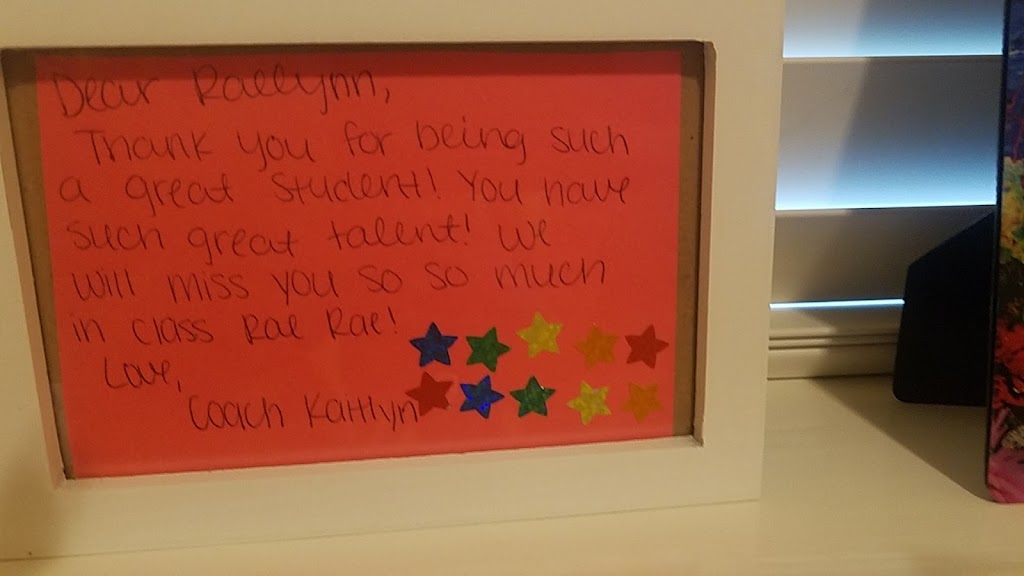 Dear Raelynn,
Thank you for being such
a great student! You have
such great talent! We
will miss you so so much
in class Rae Rae!
Love,
Coach Kaitlyn